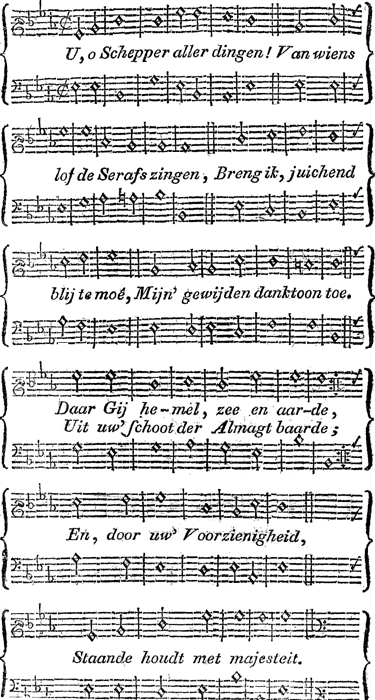 U, o Schepper aller dingen! Van wiens
lof de Serafs zingen, Breng ik, juichend
blij te moê, Mijn' gewijden danktoon toe.
Daar Gij he-mel, zee en aar-de,
Uit uw' ſchoot der Almagt baarde;
En, door uw' Voorzienigheid,
Staande houdt met majesteit.